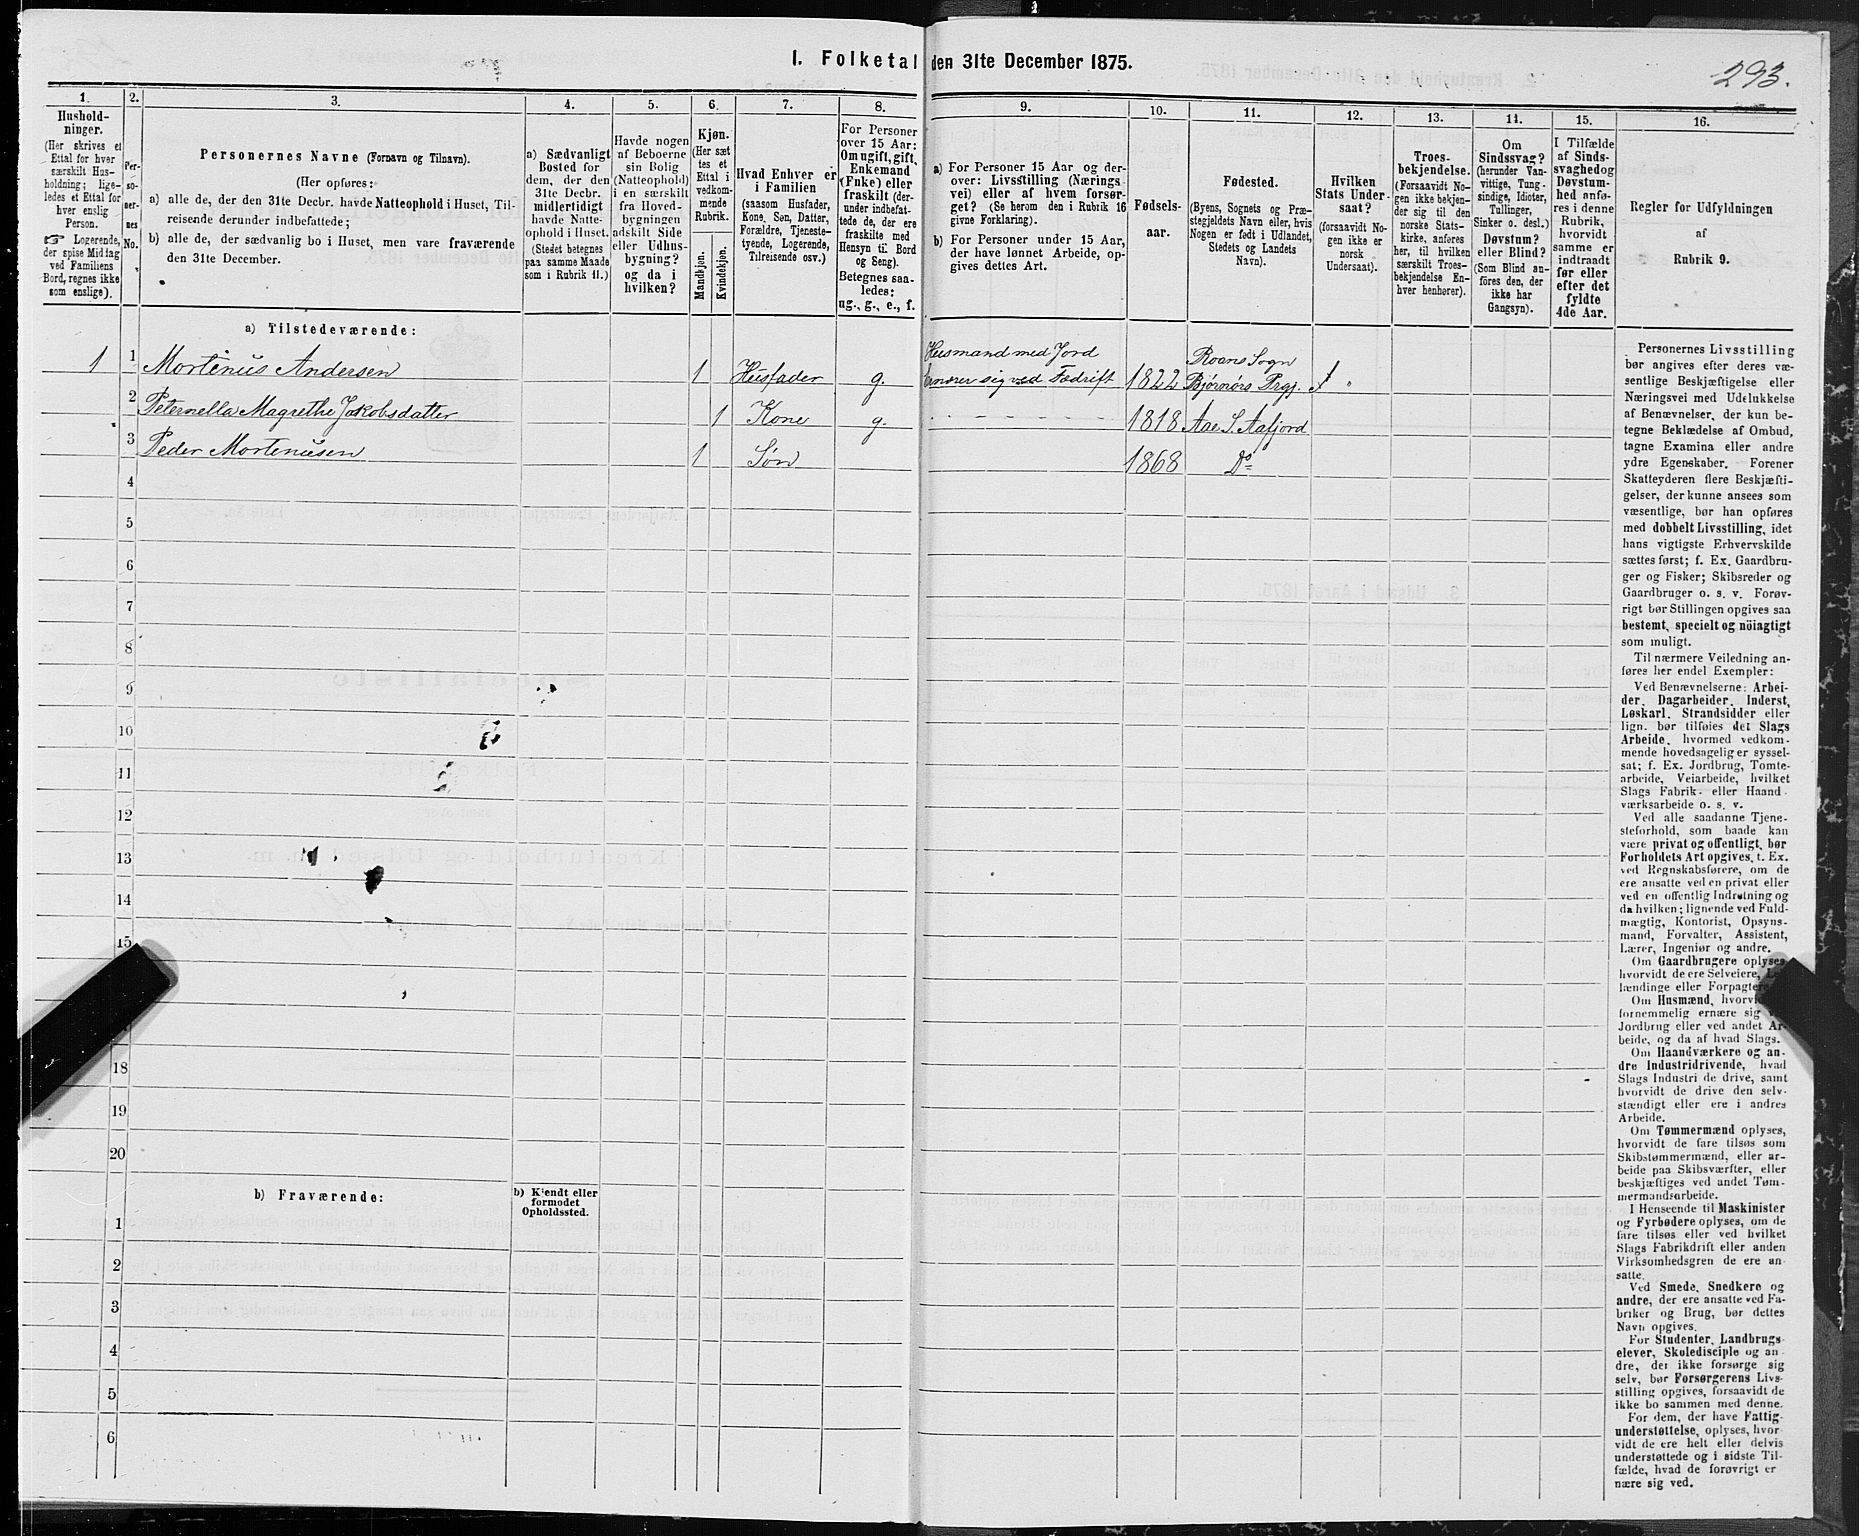 I. Folketal den 31te December 1875.
293.
1.
Husholdninger.
(Her skrives et
Ettal for hver
særskilt Husholdning; ligeledes et Ettal for
hver enslig
Person.
☞ Logerende,
der spise Middag
ved Familiens
Bord, regnes ikke
som enslige).
2.
Personernes
No.
3.
Personernes Navne (Fornavn og Tilnavn).
(Her opføres:
a) alle de, der den 31te Decbr. havde Natteophold i Huset, Tilreisende derunder indbefattede;
b) alle de, der sædvanlig bo i Huset, men vare fraværende
den 31te December.
4.
a) Sædvanligt
Bosted for
dem, der den
31te Decbr.
midlertidigt
havde Natteophold i Huset.
(Stedet betegnes
paa samme Maade
som i Rubrik 11.)
5.
Havde nogen
af Beboerne
sin Bolig
(Natteophold)
i en særskilt
fra Hovedbygningen
adskilt Side
eller Udhusbygning?
og da i
hvilken?
6.
Kjøn.
(Her sættes et
Ettal i
vedkommende
Rubrik.
Mandkjøn.
Kvindekjøn.
7.
Hvad Enhver er
i Familien
(saasom Husfader,
Kone, Søn, Datter,
Forældre, Tjenestetyende, Logerende,
Tilreisende osv.)
8.
For Personer
over 15 Aar:
Om ugift, gift,
Enkemand
(Enke) eller
fraskilt (derunder indbefattede de, der ere
fraskilte med
Hensyn til Bord
og Seng).
Betegnes saaledes:
ug., g., e., f.
9.
a) For Personer 15 Aar og derover: Livsstilling (Næringsvei) eller af hvem forsørget? (Se herom den i Rubrik 16
givne Forklaring).
b) For Personer under 15 Aar,
der have lønnet Arbeide, opgives dettes Art.
10.
Fødselsaar.
11.
Fødested.
(Byens, Sognets og Præstegjeldets Navn eller, hvis
Nogen er født i Udlandet,
Stedets og Landets
Navn).
12.
Hvilken
Stats Undersaat?
(forsaavidt Nogen ikke er
norsk
Undersaat).
13.
Troesbekjendelse.
(Forsaavidt Nogen ikke bekjender sig til den
norske Statskirke, anføres
her, til hvilken
særskilt Troesbekjendelse Enhver henhører).
14.
Om
Sindssvag?
(herunder Vanvittige, Tungsindige, Idioter,
Tullinger,
Sinker o. desl.)
Døvstum?
eller Blind?
(Som Blind anføres den, der
ikke har
Gangsyn).
15.
I Tilfælde
af Sindssvaghed og
Døvstumhed anføres i denne
Rubrik,
hvorvidt
samme er
indtraadt
før eller
efter det
fyldte
4de Aar.
16.
Regler for Udfyldningen
af
Rubrik 9.
a) Tilstedeværende:
1 1 Mortinus Andersen 1 Husfader g. Husmand med Jord
ernærer sig ved Fædrift 1822 Roans Sogn
Bjørnørs Prgj.
2 Peternella Magrethe Jakobsdatter 1 Kone g. 1818 Aae S. Aafjord
3 Peder Mortenusen 1 Søn 1868 Do
4
5
6
7
8
9
10
11
12
13
14
15
18
19
20
b) Fraværende:
b) Kjendt eller
formodet
Opholdssted.
1
2
3
4
5
6
Personernes Livsstilling
bør angives efter deres væsentlige Beskjæftigelse eller
Næringsvei med Udelukkelse
af Benævnelser, der kun betegne Beklædelse af Ombud,
tagne Examina eller andre
ydre Egenskaber. Forener
Skatteyderen flere Beskjæftigelser, der kunne ansees som
væsentlige, bør han opføres
med dobbelt Livsstilling, idet
hans vigtigste Erhvervskilde
sættes først; f. Ex. Gaardbruger og Fisker; Skibsreder og
Gaardbruger o. s. v. Forøvrigt bør Stillingen opgives saa
bestemt, specielt og nøiagtigt
som muligt.
Til nærmere Veiledning anføres her endel Exempler:
Ved Benævnelserne: Arbeider, Dagarbeider, Inderst,
Løskarl, Strandsidder eller
lign. bør tilføies det Slags
Arbeide, hvormed vedkommende hovedsagelig er sysselsat; f. Ex. Jordbrug, Tomtearbeide, Veiarbeide, hvilket
Slags Fabrik- eller Haandværksarbeide o. s. v.
Ved alle saadanne Tjenesteforhold, som baade kan
være privat og offentligt, bør
Forholdets Art opgives, f. Ex.
ved Regnskabsførere, om de
ere ansatte ved en privat eller
ved en offentlig Indretning og
da hvilken; lignende ved Fuldmægtig, Kontorist, Opsynsmand, Forvalter, Assistent,
Lærer, Ingeniør og andre.
Om Gaardbrugere oplyses,
hvorvidt de ere Selveiere,
lændinge eller Forpagtere
Om Husmænd,
fornemmelig ernære sig
Jordbrug eller ved andet Arbeide, og da af hvad Slags.
Om Haandværkere og andre Industridrivende, hvad
Slags Industri de drive, samt
hvorvidt de drive den selvstændigt eller ere i andres
Arbeide.
Om Tømmermænd oplyses,
hvorvidt de fare tilsøs som
Skibstømmermænd, eller arbeide paa Skibsværfter, eller
beskjæftiges ved andet Tømmermandsarbeide.
I Henseende til Maskinister
og Fyrbødere oplyses, om de
fare tilsøs eller ved hvilket
Slags Fabrikdrift eller anden
Virksomhedsgren de ere ansatte.
Ved Smede, Snedkere og
andre, der ere ansatte ved Fabriker og Brug, bør dettes
Navn opgives.
For Studenter, Landbrugselever, Skoledisciple og andre, der ikke forsørge sig
selv, bør Forsørgerens Livsstilling opgives, forsaavidt de
ikke bo sammen med denne.
For dem, der have Fattigunderstøttelse, oplyses, hvorvidt de ere helt eller delvis
understøttede og i sidste Tilfælde, hvad de forøvrigt ernære sig ved.